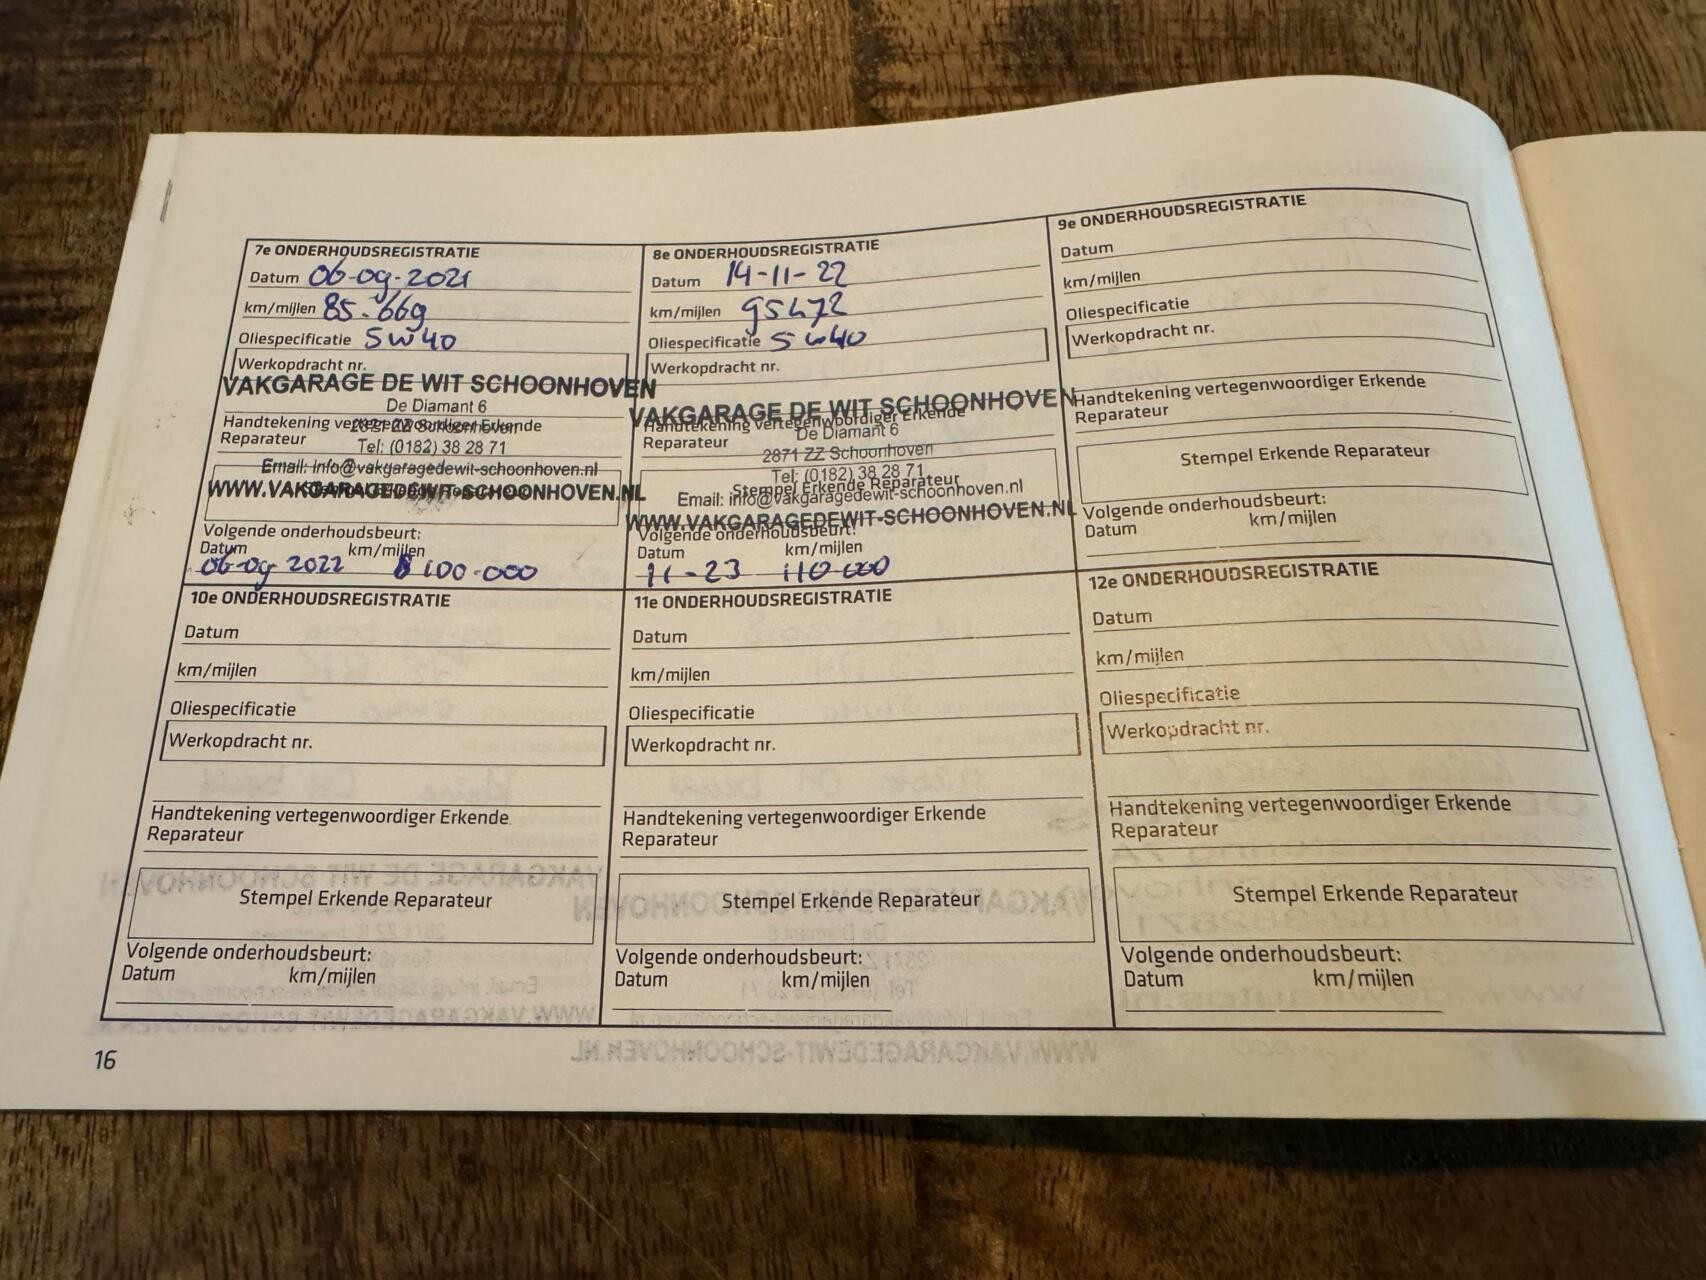 7e ONDERHOUDSREGISTRATIE
Datum 06-09-2021
km/mijlen 85.669
Oliespecificatie 5w40
Werkopdracht nr.
VAKGARAGE DE WIT SCHOONHOVEN
De Diamant 6
Handtekening vertegenwoordiger Erkende
2871 ZZ Schoonhoven
Reparateur
Tel: (0182) 38 28 71
Email: info@vakgaragedewit-schoonhoven.nl
Stempel Erkende Reparateur
WWW.VAKGARAGEDEWIT-SCHOONHOVEN.NL
Volgende onderhoudsbeurt:
Datum km/mijlen
06-09 2022 100.000
8e ONDERHOUDSREGISTRATIE
Datum 14-11-22
km/mijlen 95472
Oliespecificatie 5w40
Werkopdracht nr.
VAKGARAGE DE WIT SCHOONHOVEN
Handtekening vertegenwoordiger Erkende
De Diamant 6
Reparateur
2871 ZZ Schoonhoven
Tel: (0182) 38 28 71
Stempel Erkende Reparateur
Email: info@vakgaragedewit-schoonhoven.nl
WWW.VAKGARAGEDEWIT-SCHOONHOVEN.NL
Volgende onderhoudsbeurt:
Datum km/mijlen
11-23 110 000
9e ONDERHOUDSREGISTRATIE
Datum
km/mijlen
Oliespecificatie
Werkopdracht nr.
Handtekening vertegenwoordiger Erkende
Reparateur
Stempel Erkende Reparateur
Volgende onderhoudsbeurt:
Datum km/mijlen
10e ONDERHOUDSREGISTRATIE
Datum
km/mijlen
Oliespecificatie
Werkopdracht nr.
Handtekening vertegenwoordiger Erkende
Reparateur
Stempel Erkende Reparateur
Volgende onderhoudsbeurt:
Datum km/mijlen
11e ONDERHOUDSREGISTRATIE
Datum
km/mijlen
Oliespecificatie
Werkopdracht nr.
Handtekening vertegenwoordiger Erkende
Reparateur
Stempel Erkende Reparateur
Volgende onderhoudsbeurt:
Datum km/mijlen
12e ONDERHOUDSREGISTRATIE
Datum
km/mijlen
Oliespecificatie
Werkopdracht nr.
Handtekening vertegenwoordiger Erkende
Reparateur
Stempel Erkende Reparateur
Volgende onderhoudsbeurt:
Datum km/mijlen
16